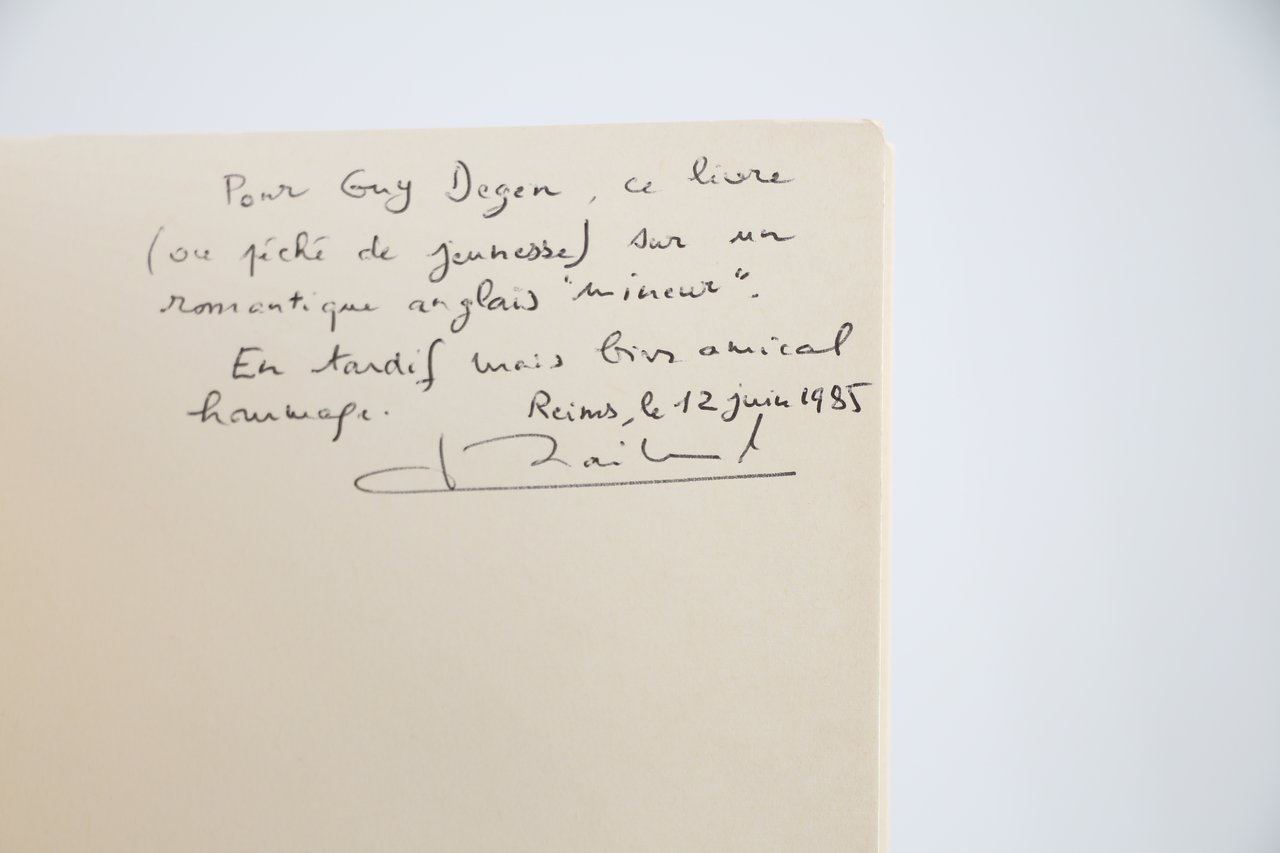 Pour Guy Degen, ce livre
(ou péché de jeunesse) sur un
romantique anglais "mineur".
En tardif mais bien amical
hommage.
Reims, le 12 juin 1985